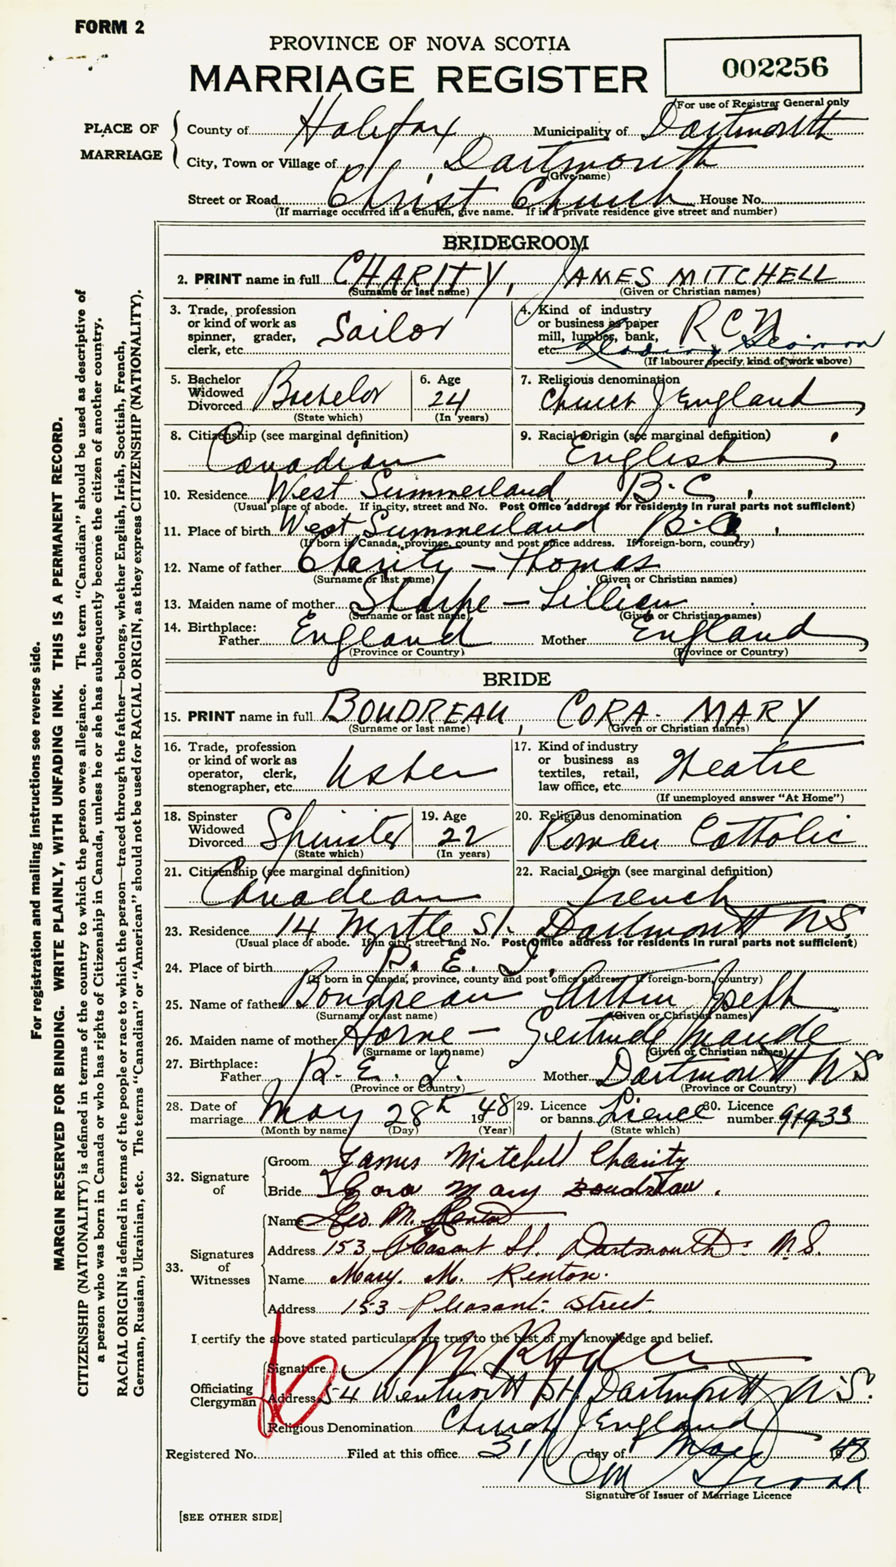 FORM 2
PROVINCE OF NOVA SCOTIA
MARRIAGE REGISTER
002256
For use of Registrar General only
PLACE OF MARRIAGE
County of Halifax Municipality of Dartmouth
City, Town or Village of Dartmouth
(Give name)
Street or Road Christ Church House No.
(If marriage occurred in a Church, give name. If in a private residence give street and number)
BRIDEGROOM
2. PRINT name in full CHARITY, JAMES MITCHELL
(Surname or last name) (Given or Christian names)
3. Trade, profession or kind of work as spinner, grader, clerk, etc. Sailor
4. Kind of industry or business as paper mill, lumber, bank, etc. RCN Leading Seaman
(If labourer specify, kind of work above)
5. Bachelor Widowed Divorced Bachelor
(State which)
6. Age 24
(In years)
7. Religious denomination Church of England
8. Citizenship (see marginal definition) Canadian
9. Racial Origin (see marginal definition) English
10. Residence West Summerland, B.C.
(Usual place of abode. If in city, street and No. Post Office address for residents in rural parts not sufficient)
11. Place of birth West Summerland B.C.
(If born in Canada, province, county and post office address. If foreign-born, country)
12. Name of father Charity - Thomas
(Surname or last name) (Given or Christian names)
13. Maiden name of mother Sharpe - Lillian
(Surname or last name) (Given or Christian names)
14. Birthplace: Father England Mother England
(Province or Country) (Province or Country)
BRIDE
15. PRINT name in full BOUDREAU, CORA MARY
(Surname or last name) (Given or Christian names)
16. Trade, profession or kind of work as operator, clerk, stenographer, etc. Usher
17. Kind of industry or business as textiles, retail, law office, etc. Theatre
(If unemployed answer "At Home")
18. Spinster Widowed Divorced Spinster
(State which)
19. Age 22
(In years)
20. Religious denomination Roman Catholic
21. Citizenship (see marginal definition) Canadian
22. Racial Origin (see marginal definition) French
23. Residence 14 Myrtle St. Dartmouth N.S.
(Usual place of abode. If in city, street and No. Post Office address for residents in rural parts not sufficient)
24. Place of birth P. E. I.
(If born in Canada, province, county and post office address. If foreign-born, country)
25. Name of father Boudreau Arthur Joseph
(Surname or last name) (Given or Christian names)
26. Maiden name of mother Horne - Gertrude Maude
(Surname or last name) (Given or Christian names)
27. Birthplace: Father P. E. I. Mother Dartmouth N S
(Province or Country) (Province or Country)
28. Date of marriage May 28th 1948
(Month by name) (Day) (Year)
29. Licence or banns Licence
(State which)
30. Licence number 91933
32. Signature of
Groom James Mitchell Charity
Bride Cora Mary Boudreau.
33. Signatures of Witnesses
Name Geo. M. Renton
Address 153 Pleasant St. Dartmouth N.S.
Name Mary. M. Renton.
Address 153 Pleasant Street.
I certify the above stated particulars are true to the best of my knowledge and belief.
Officiating Clergyman
Signature
Address 54 Wentworth St. Dartmouth N.S.
Religious Denomination Church of England
Registered No. Filed at this office 31 day of May 1948
Signature of Issuer of Marriage Licence
[SEE OTHER SIDE]
For registration and mailing instructions see reverse side.
MARGIN RESERVED FOR BINDING. WRITE PLAINLY, WITH UNFADING INK. THIS IS A PERMANENT RECORD.
CITIZENSHIP (NATIONALITY) is defined in terms of the country to which the person owes allegiance. The term "Canadian" should be used as descriptive of
a person who was born in Canada or who has rights of Citizenship in Canada, unless he or she has subsequently become the citizen of another country.
RACIAL ORIGIN is defined in terms of the people or race to which the person—traced through the father—belongs, whether English, Irish, Scottish, French,
German, Russian, Ukrainian, etc. The terms "Canadian" or "American" should not be used for RACIAL ORIGIN, as they express CITIZENSHIP (NATIONALITY).